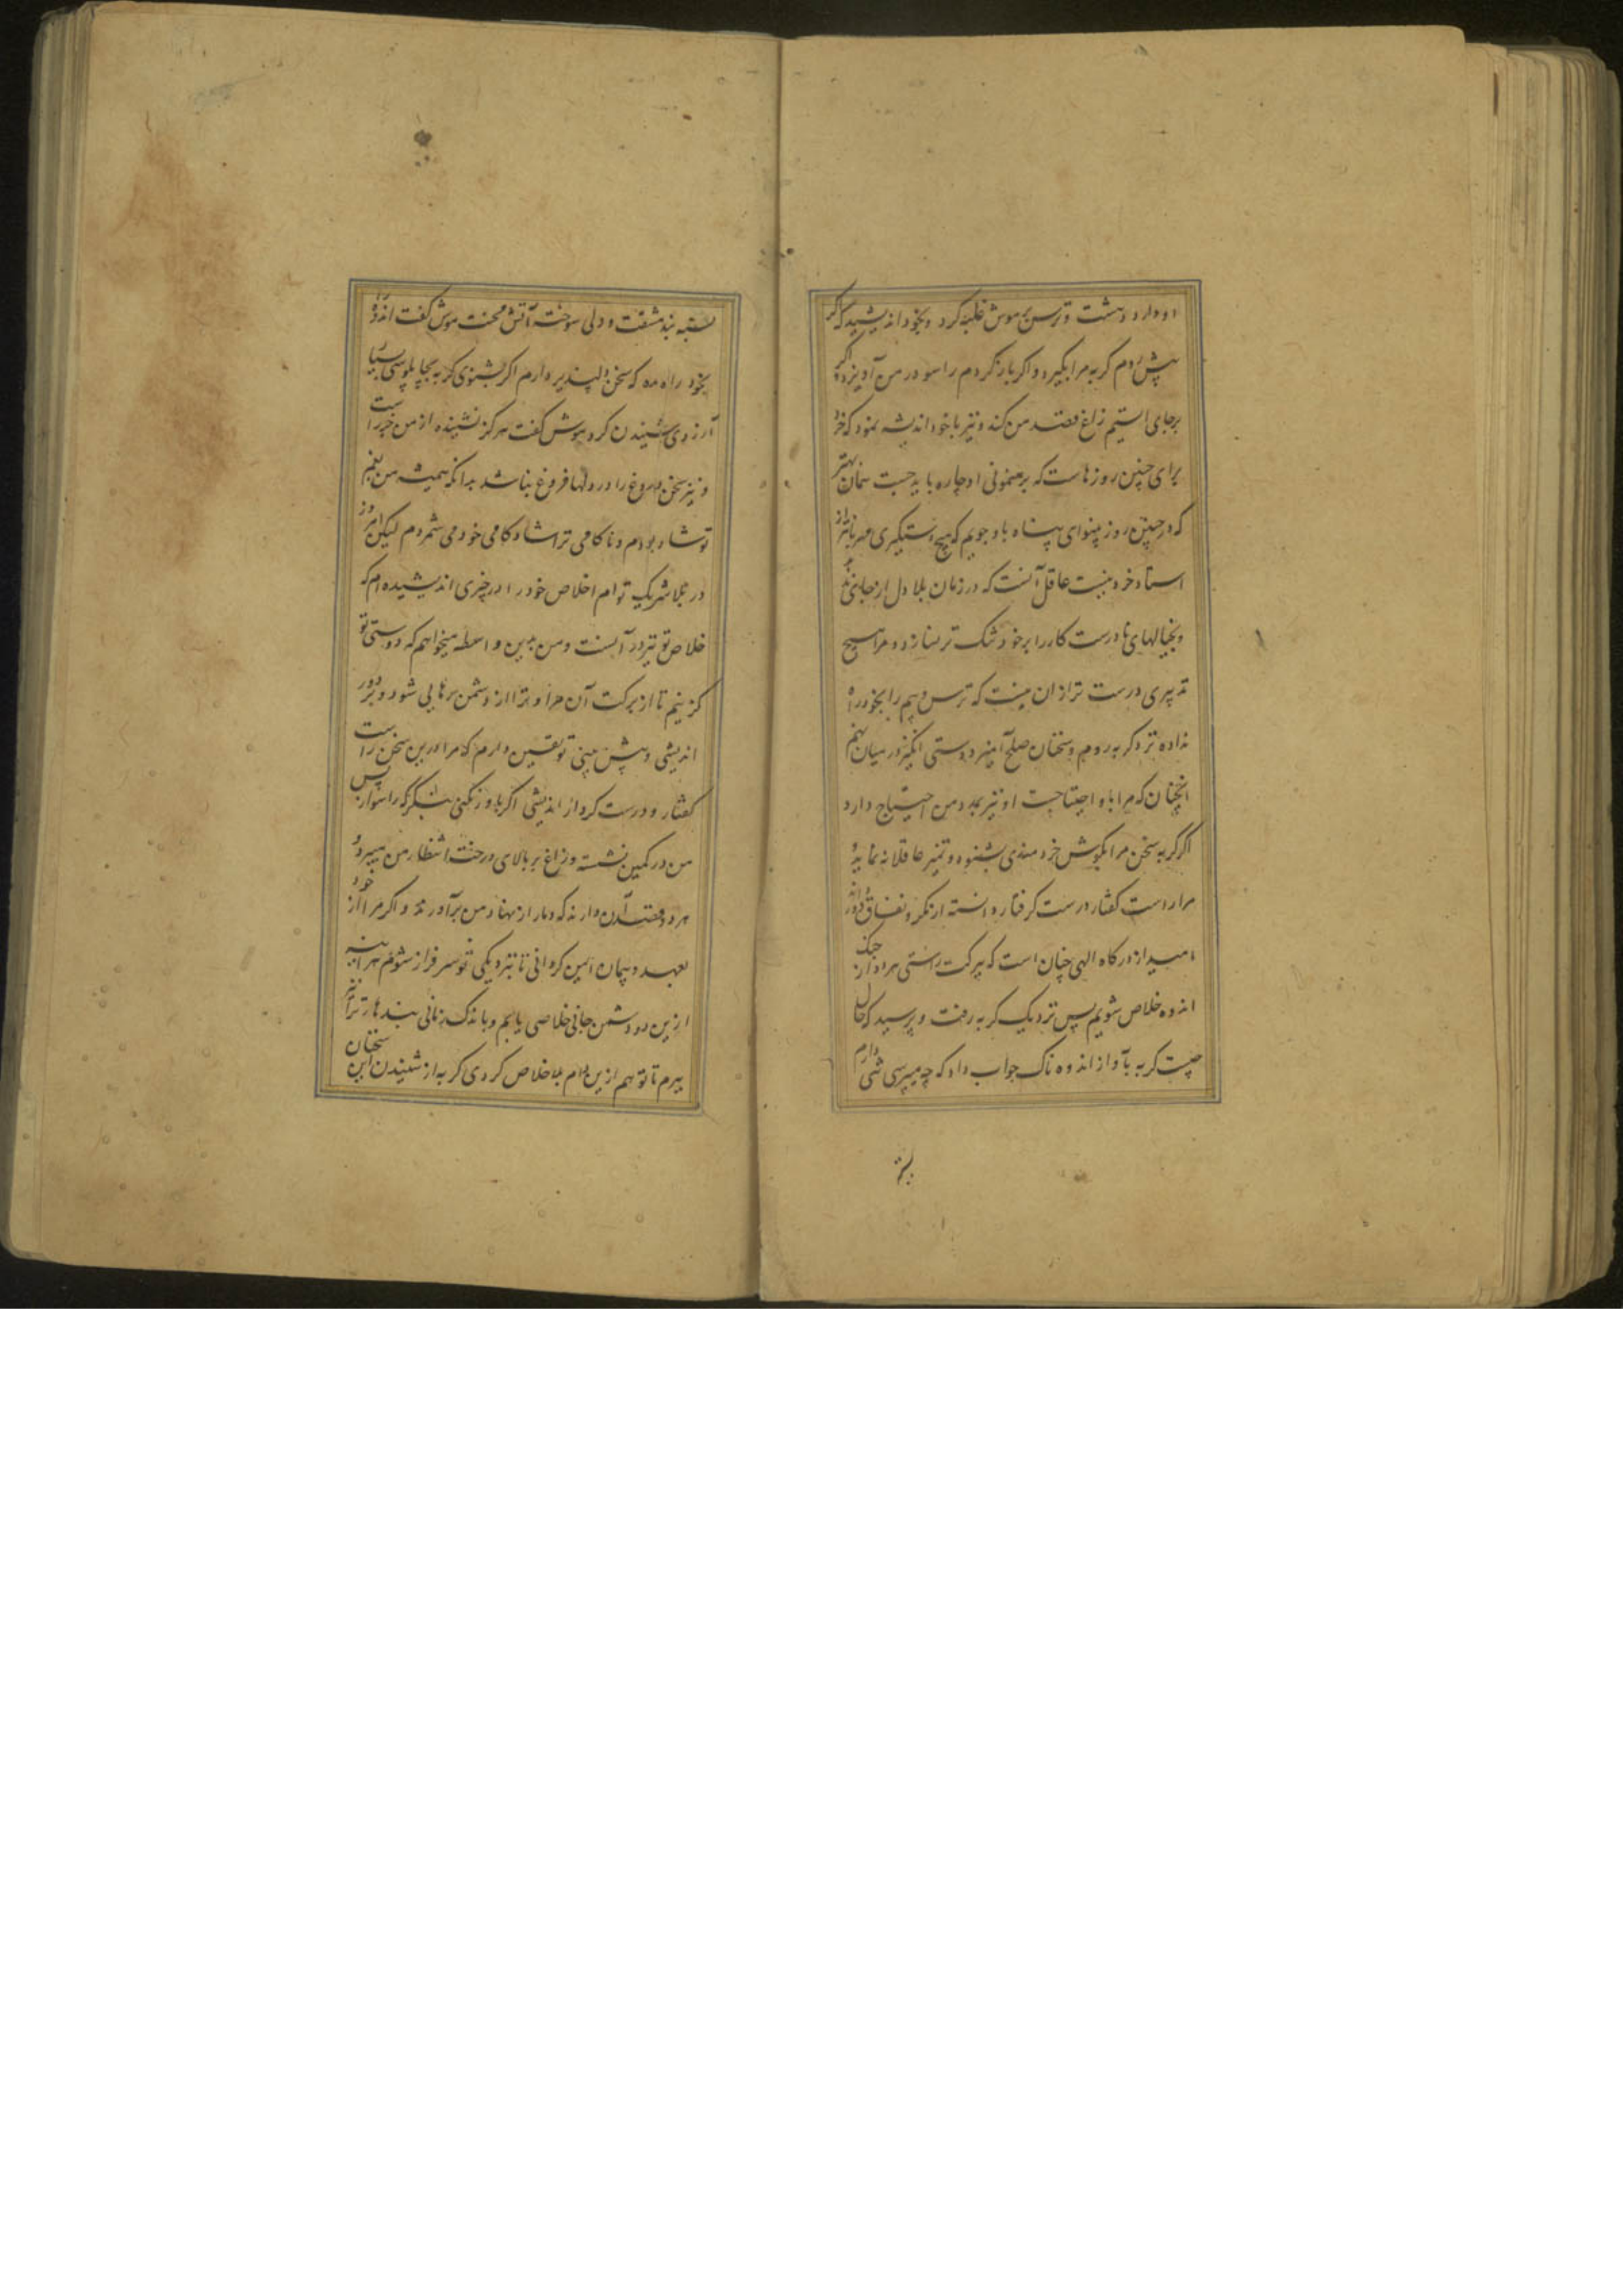 او دارد دهشت و ترس بر موش غلبه کرد و بخود اندیشید که اگر
پیش روم گربه مرا بگیرد و اگر باز گردم راسو در من آویزد و اگر
برجای ایستم زاغ قصد من کند و نیز با خود اندیشه نمود که خرد
برای چنین روزهاست که برهنمونی او چاره باید جست همان بهتر
که در چنین روز بینوای پناه باو جویم که هیچ دستگیری مهربانتر از
استاد خرد نیست عاقل آنست که در زمان بلا دل از جای نبرد
و بخیالهای نادرست کار را بر خود تنگ تر نسازد و مرا هیچ
تدبیری درست تر ازان نیست که ترس و بیم را بخود راه
نداده نزد گربه روم و سخنان صلح آمیز دوستی انگیز در میان نهم
انچنان که مرا باو احتیاجست او نیز بمدد من احتیاج دارد
اگر گربه سخن مرا بگوش خردمندی بشنود و تمیز عاقلانه نماید و
مرا راست گفتار درست کرفتار دانسته از مکر و نفاق دور داند
امید از درگاه الهی چنان است که ببرکت راستی هر دو از چنگ
اندوه خلاص شویم پس نزدیک گربه رفت و پرسید که حال
چیست گربه بآواز اندوه ناک جواب داد که چه میپرسی تنی دارم
بسته بند مشقت و دلی سوخته آتش محنت موش گفت اندوه
بخود راه مده که سخن دلپذیر دارم اگر بشنوی گربه بچاپلوسی بسیار
آرزوی شنیدن کرد موش گفت هرگز نشنیده از من جز راست
و نیز سخن دروغ را در دلها فروغ نباشد بدانکه همیشه من بغم
تو شاد بودم و ناکامی ترا شادکامی خود می شمردم لیکن امروز
در بلا شریک توام اخلاص خود را در چیزی اندیشیده ام که
خلاص تو نیز در آنست و من بدین واسطه میخواهم که دوستی تو
گزینم تا از برکت آن مرا و ترا از دشمن رهایی شود و بر دور
اندیشی و پیش بینی تو یقین دارم که مرا درین سخن راست
گفتار و درست کردار اندیشی اگر باور نکنی بنگر که راسو از پس
من در کمین نشسته و زاغ بر بالای درخت انتظار من میبرد و
هر دو قصد آن دارند که دمار از نهاد من برآورند و اگر مرا از خود
بعهد و پیمان ایمن گردانی تا بنزدیکی تو سرفراز شوم هر آینه
ازین دو دشمن جانی خلاصی یابم و باندک زمانی بندهای ترا نیز
ببرم تا تو هم ازین دام بلا خلاص گردی گربه از شنیدن این سخنان